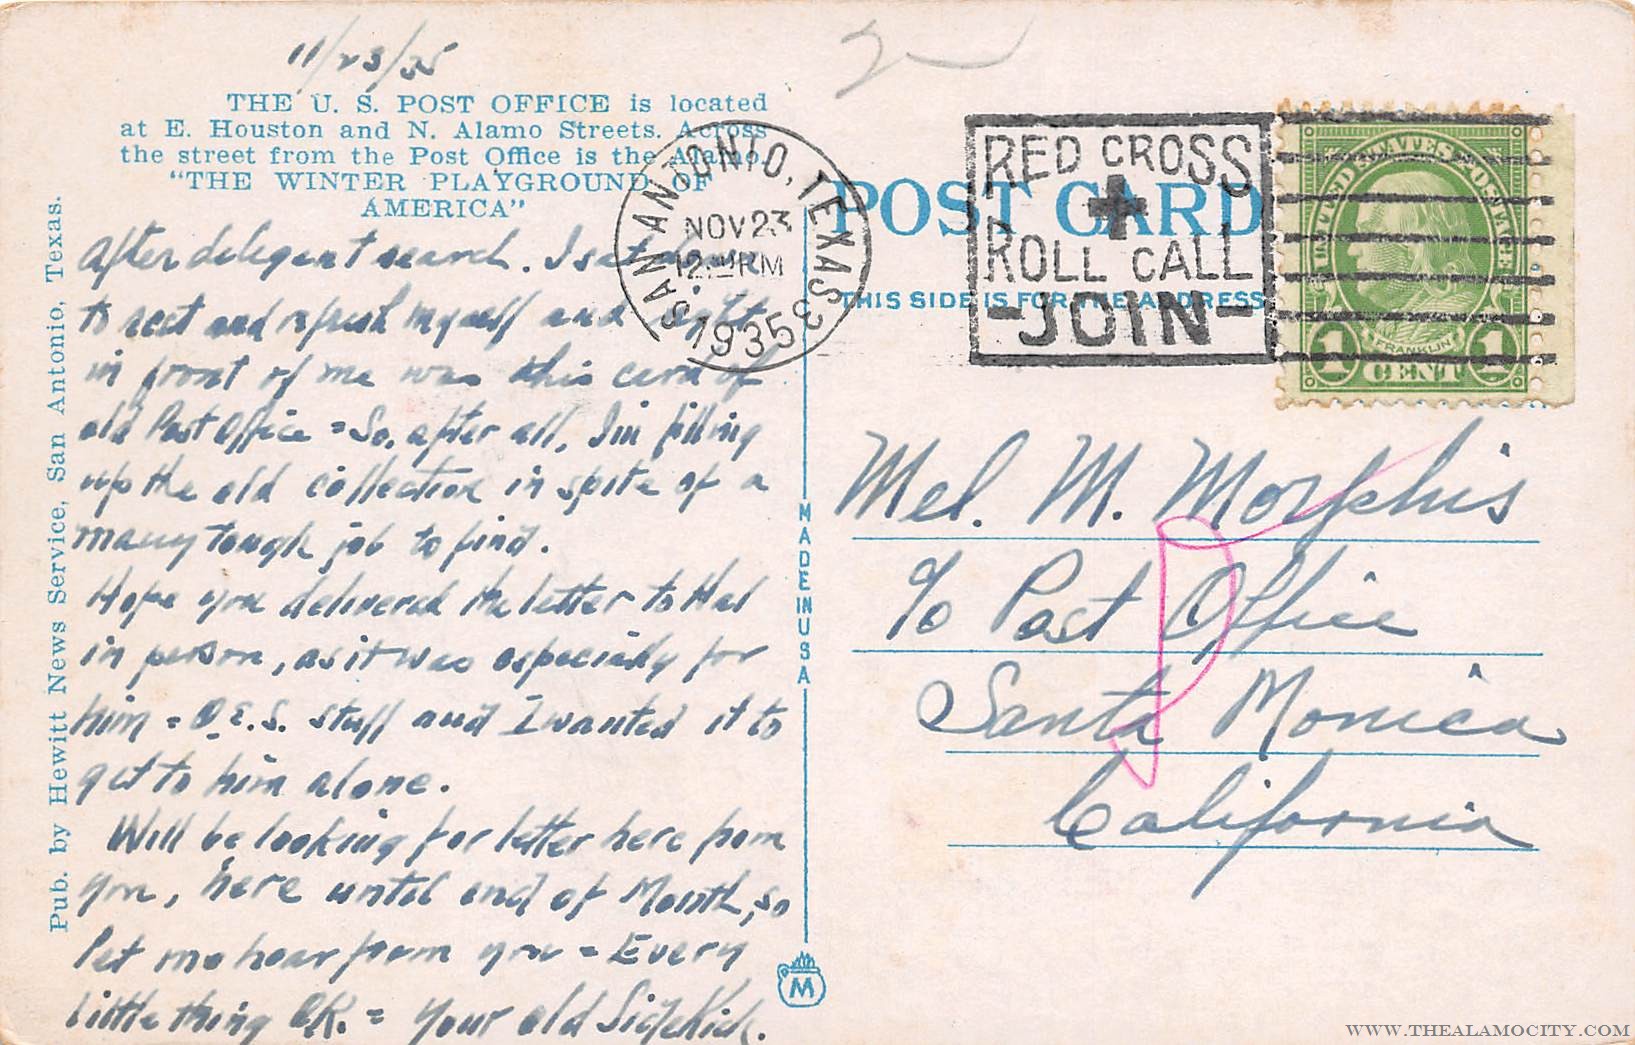 11/23/35
THE U. S. POST OFFICE is located
at E. Houston and N. Alamo Streets. Across
the street from the Post Office is the Alamo.
"THE WINTER PLAYGROUND OF
AMERICA"
Pub. by Hewitt News Service, San Antonio, Texas.
After delegent search. I sat down
to rest and refresh myself and right
in front of me was this card of
old Post Office = So, after all, I'm filling
up the old collection in spite of a
many tough job to find.
Hope you delivered the letter to Hal
in person, as it was especially for
him = O.E.S. stuff and I wanted it to
get to him alone.
Will be looking for letter here from
you, here until end of Month, so
let me hear from you = Every
little thing O.K. = Your old SideKick.
MADE IN USA
M
SAN ANTONIO, TEXAS 3
NOV 23
12 - PM
1935
POST CARD
THIS SIDE IS FOR THE ADDRESS
RED CROSS
ROLL CALL
-JOIN-
UNITED STATES POSTAGE
FRANKLIN
1 CENT 1
Mel. M. Morphis
c/o Post Office
Santa Monica
California
WWW.THEALAMOCITY.COM